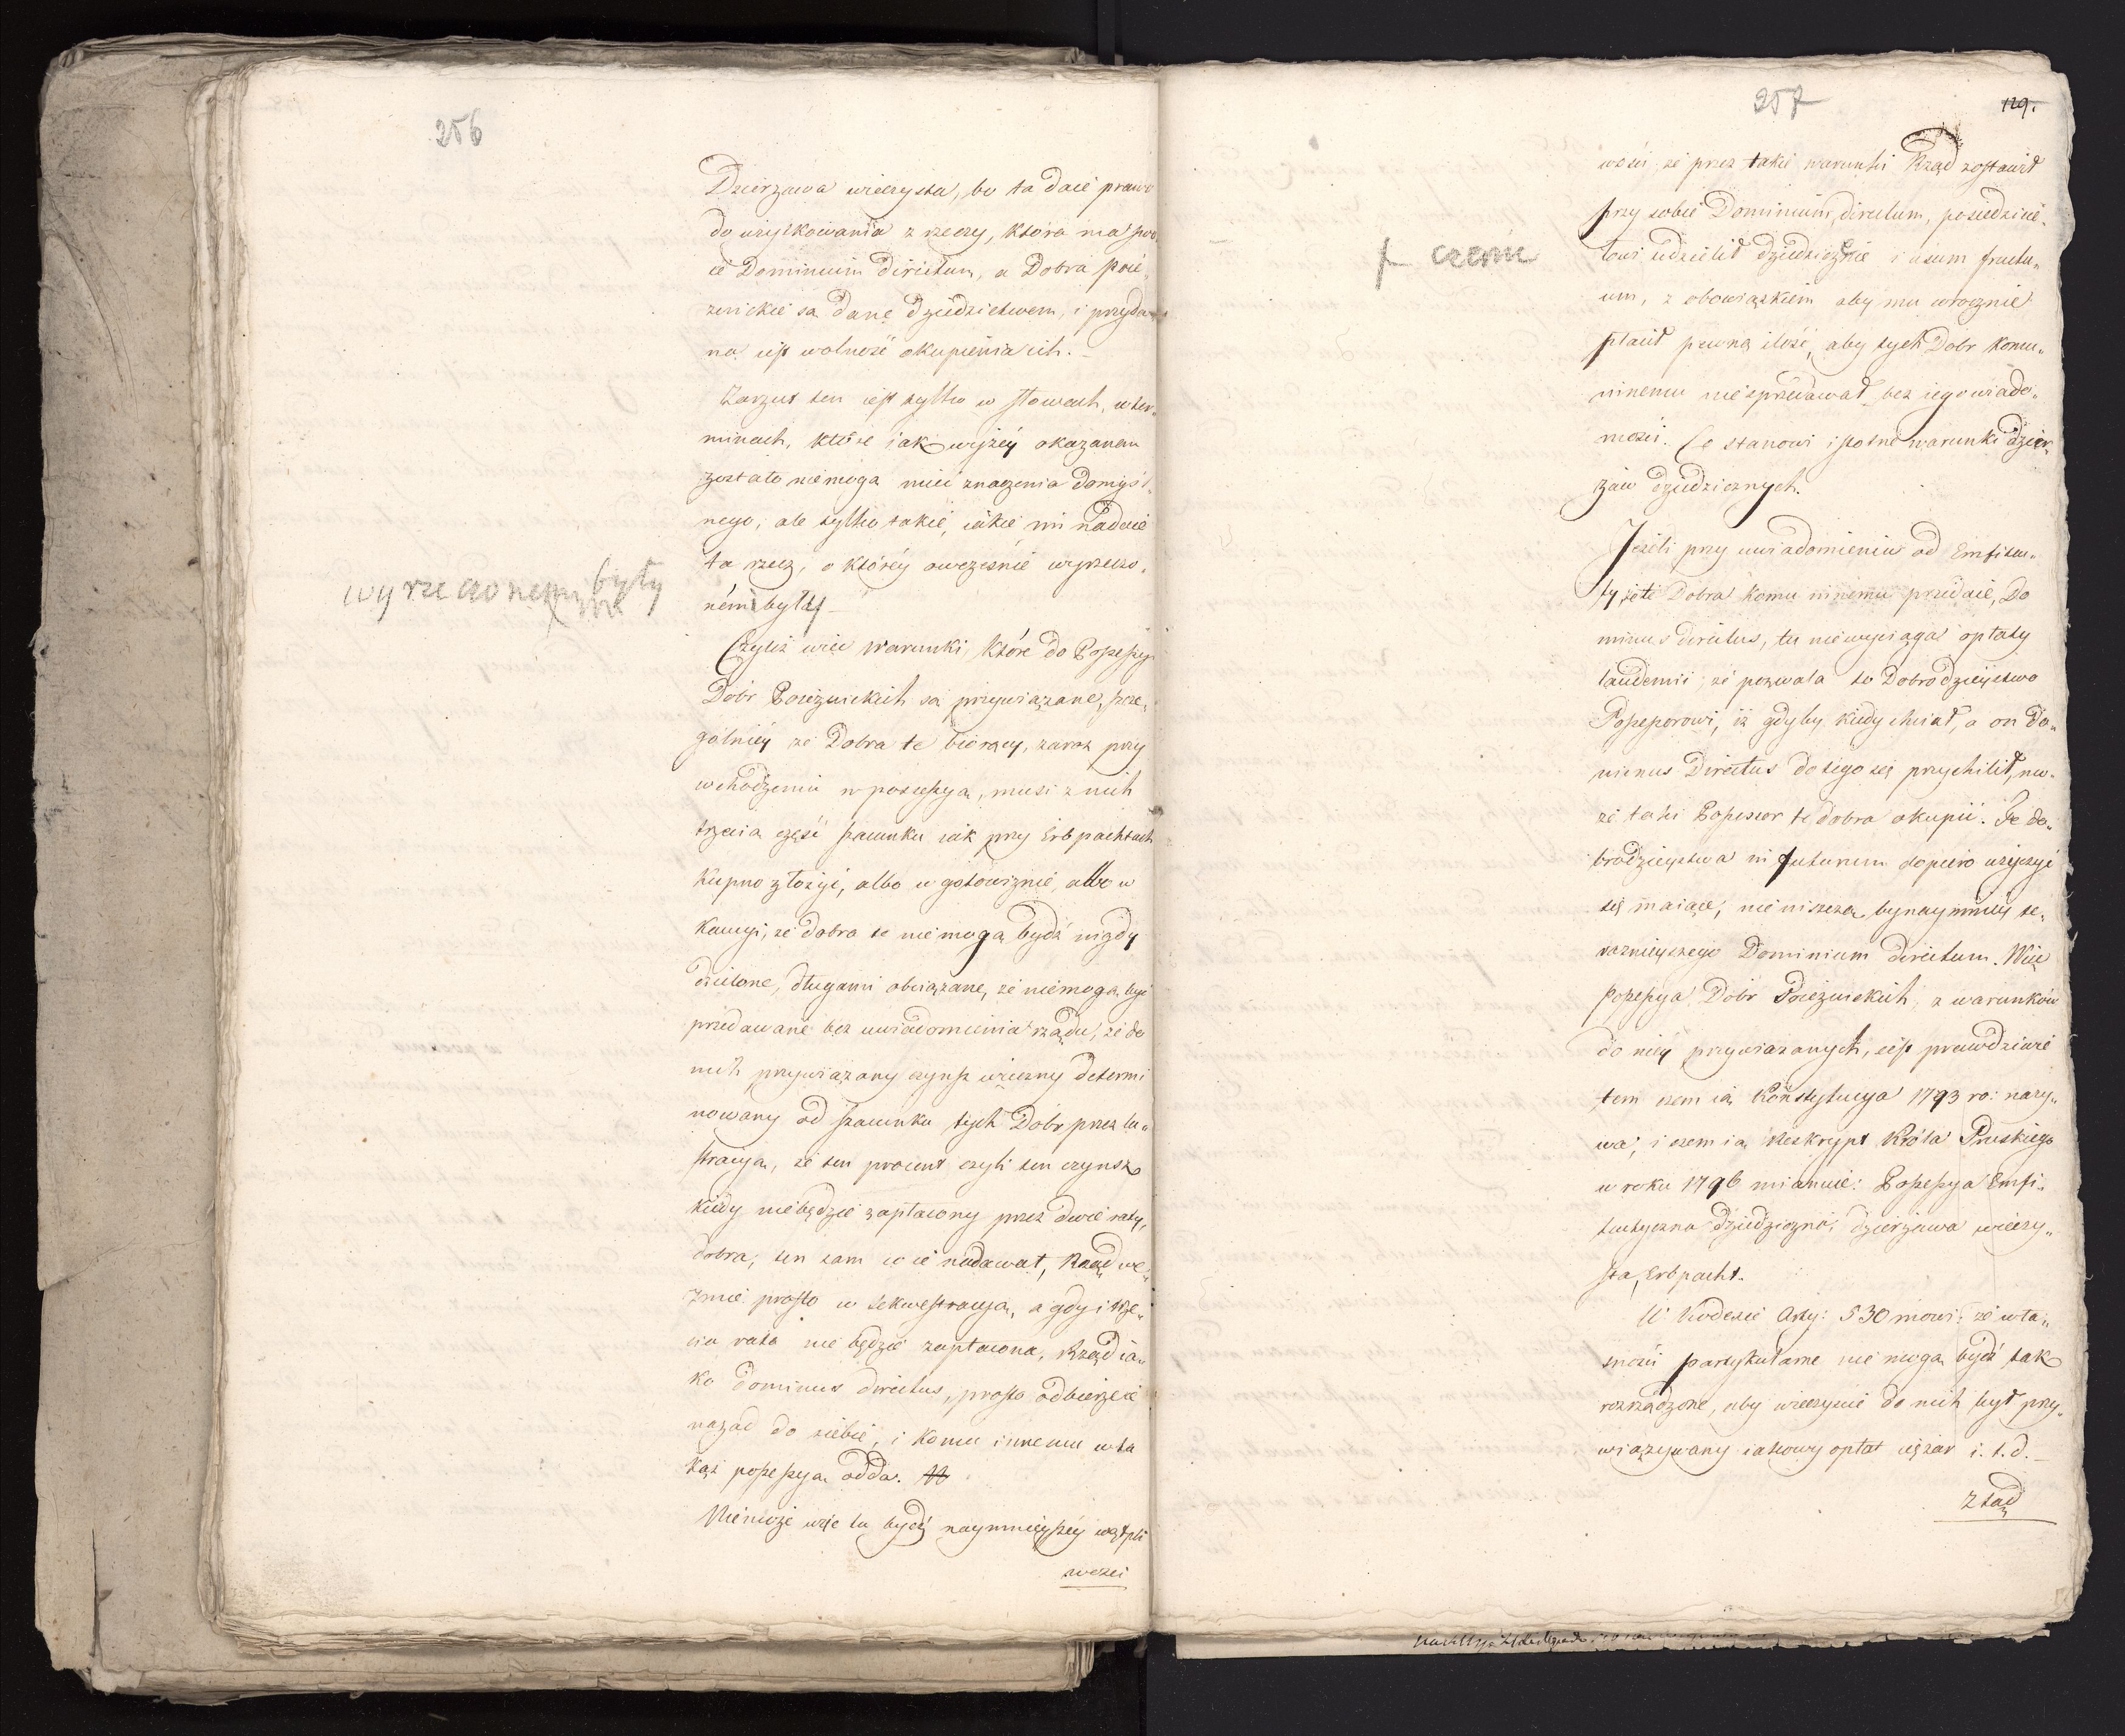 256
Dzierzawa wieczysta, bo ta daie prawo
do uzyskowania z rzeczy, która ma swo
ie Dominium directum, a Dobra poie„
zuickie są dane dziedzictwem, i przyda„
na iest wolność okupienia ich. –
Zarzut ten iest tylko w słowach, w ter„
minach, które iak wyżéy okazanem
zostało niemogą mieć znaczenia domyśl„
nego, ale tylko takie, iakie im nadaie
ta rzecz, o któréy owcześnie wyrzeczo„
némi były –
wyrzeczonemi były
Czyliż więc warunki, które do Possessyi
Dóbr Poiezuickich są przywiązane, szcze„
gólniéy że Dobra te biorący, zaraz przy
wchodzeniu w possessyą, musi z nich
trzecią część szacunku iak przy Erbpachtach
kupno złożyć, albo w gotowiznie, albo w
kaucyi, że dobra te nie mogą bydź nigdy
dzielone, długami obciążane, że niemogą być
przedawane bez uwiadomienia rządu, że do
nich przywiązany czynsz wieczny determi
nowany od szacunku tych Dobr przez lu„
stracyą, że ten procent czyli ten czynsz
kiedy niebędzie zapłacony przez dwie raty,
dobra, ten sam co ie nadawał, Rząd we„
zmie prosto w sekwestracyą, a gdy i trze„
cia rata nie będzie zapłacona, Rząd ia„
ko dominus directus, prosto odbierze ie
nazad do siebie, i komu innemu w ta
kąż possessyą odda.
Niemoże więc tu bydź naymnieyszéy wątpli
wości
257
129.
wości że przez takie warunki Rząd zostawił
przy sobie Dominium directum, posiedzicie„
lowi udzielił dziedzicznie i usum fructu„
um, z obowiązkiem aby mu wrocznie
płacił pewną ilość, aby tych Dobr komu„
innemu niesprzedawał bez iego wiado„
mości. Co stanowi istotne warunki dzier„
żaw dziedzicznych.
Jeżeli przy uwiadomieniu od Emfiteu„
ty, że te Dobra komu innemu przedaie, Do
minus directus, tu niewyciąga opłaty
laudemii, że pozwala to Dobrodzieystwo
Possessorowi, iż gdyby kiedy chciał, a on Do„
minus Directus do tego się przychilił, mo„
że taki Possessor te dobra okupić. Te do„
brodzieystwa in futurum dopiero użyczyć
się maiące, nie niszczą bynaymniéy te„
raznieyszego Dominium directum. Więc
possessya Dóbr Poiezuickich, z warunków
do niéy przywiązanych, iest prawdziwie
tem czem ią Konstytucya 1793 ro: nazy„
wa, i czem ią Reskrypt Króla Pruskiego
w roku 1796 mianuie: Possessya Emfi„
teutyczna dziedziczna, dzierżawa wieczy„
sta, Erbpacht.
W Kodexie Arty: 530 mowi: że wła„
sności partykularne nie mogą bydź tak
rozrządzone, aby wieczyscie do nich był przy„
wiązywany iakowy opłat ciężar i.t.d. –
ztąd